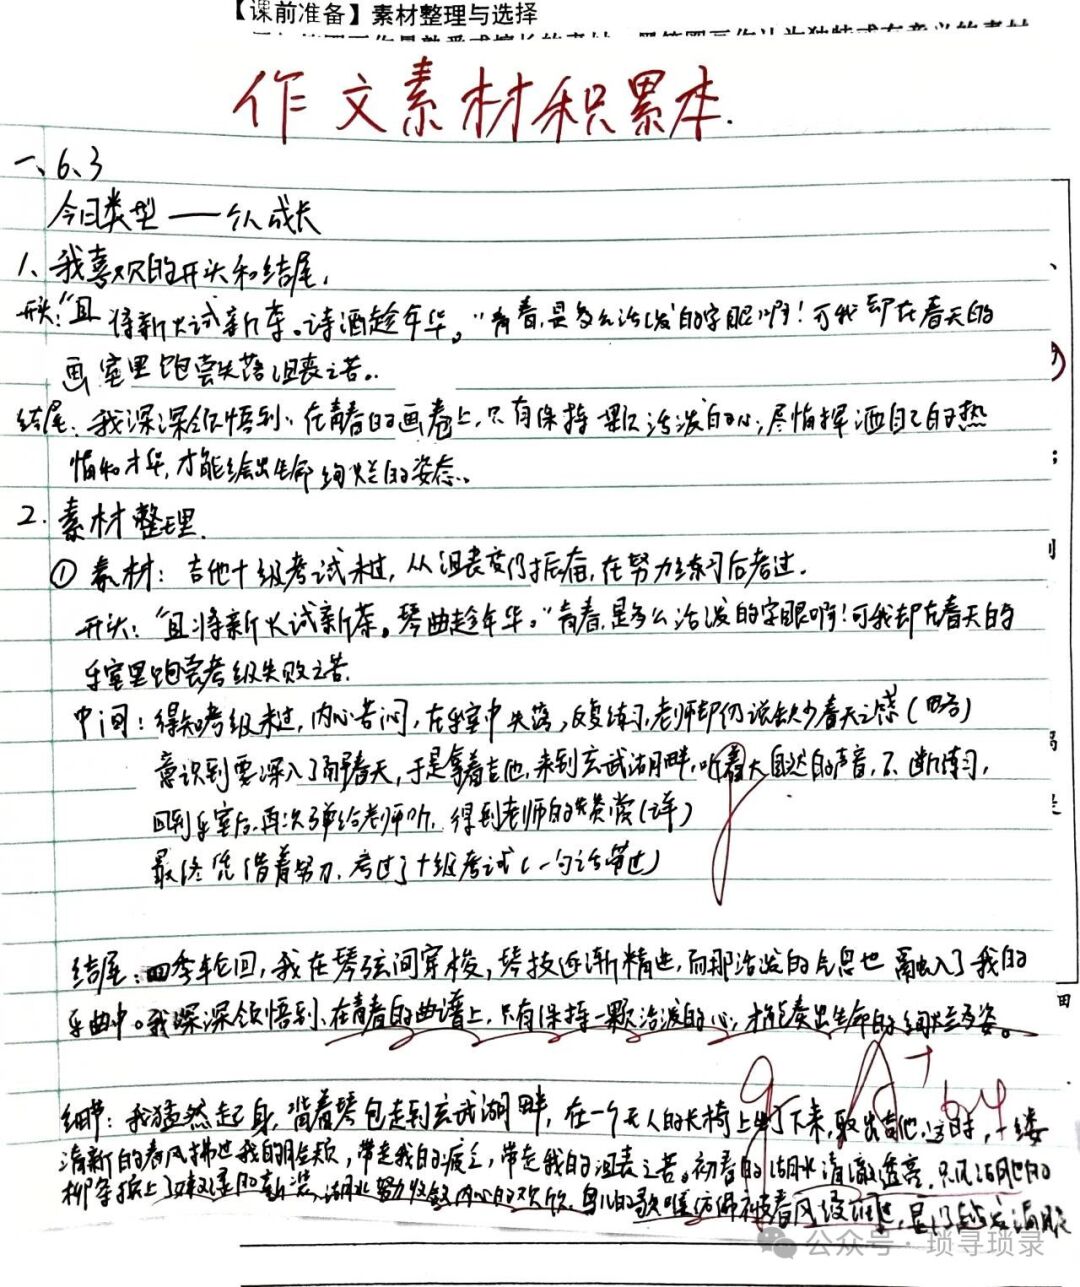 【课前准备】素材整理与选择
作文素材积累本.
一、6、3
今日类型——个人成长
1、我喜欢的开头和结尾.
开头:“且将新火试新茶。诗酒趁年华。”青春,是多么活泼的字眼啊!可我却在春天的
画室里饱尝失落沮丧之苦。
结尾:我深深领悟到:在青春的画卷上,只有保持一颗活泼的心,尽情挥洒自己的热
情和才华,才能绘出生命绚烂的姿态。
2.素材整理.
①素材:吉他十级考试未过,从沮丧变得振奋,在努力练习后考过.
开头:“且将新火试新茶。琴曲趁年华。”青春,是多么活泼的字眼啊!可我却在春天的
乐室里饱尝考级失败之苦.
中间:得知考级未过,内心苦闷,在乐室中失落,反复练习,老师却仍说缺少春天之感(略)
意识到要深入了解春天,于是拿着吉他,来到玄武湖畔,听着大自然的声音,不断练习,
回到乐室后,再次弹给老师听,得到老师的赞赏(详)
最终凭借着努力,考过了十级考试(一句话带过)
结尾:四季轮回,我在琴弦间穿梭,琴技逐渐精进,而那活泼的气息也融入了我的
乐曲中。我深深领悟到,在青春的曲谱上,只有保持一颗活泼的心,才能奏出生命的绚烂多姿。
A+
细节:我猛然起身,背着琴包走到玄武湖畔,在一个无人的长椅上坐了下来,取出吉他.这时,一缕
清新的春风拂过我的脸颊,带走我的疲乏,带走我的沮丧之苦。初春的湖水清澈透亮,只见湖边的
柳条换上了嫩绿的新装,湖水努力收敛内心的欢欣,鸟儿的歌喉仿佛被春风浸润过,显得越发清脆
公众号·琐寻琐录